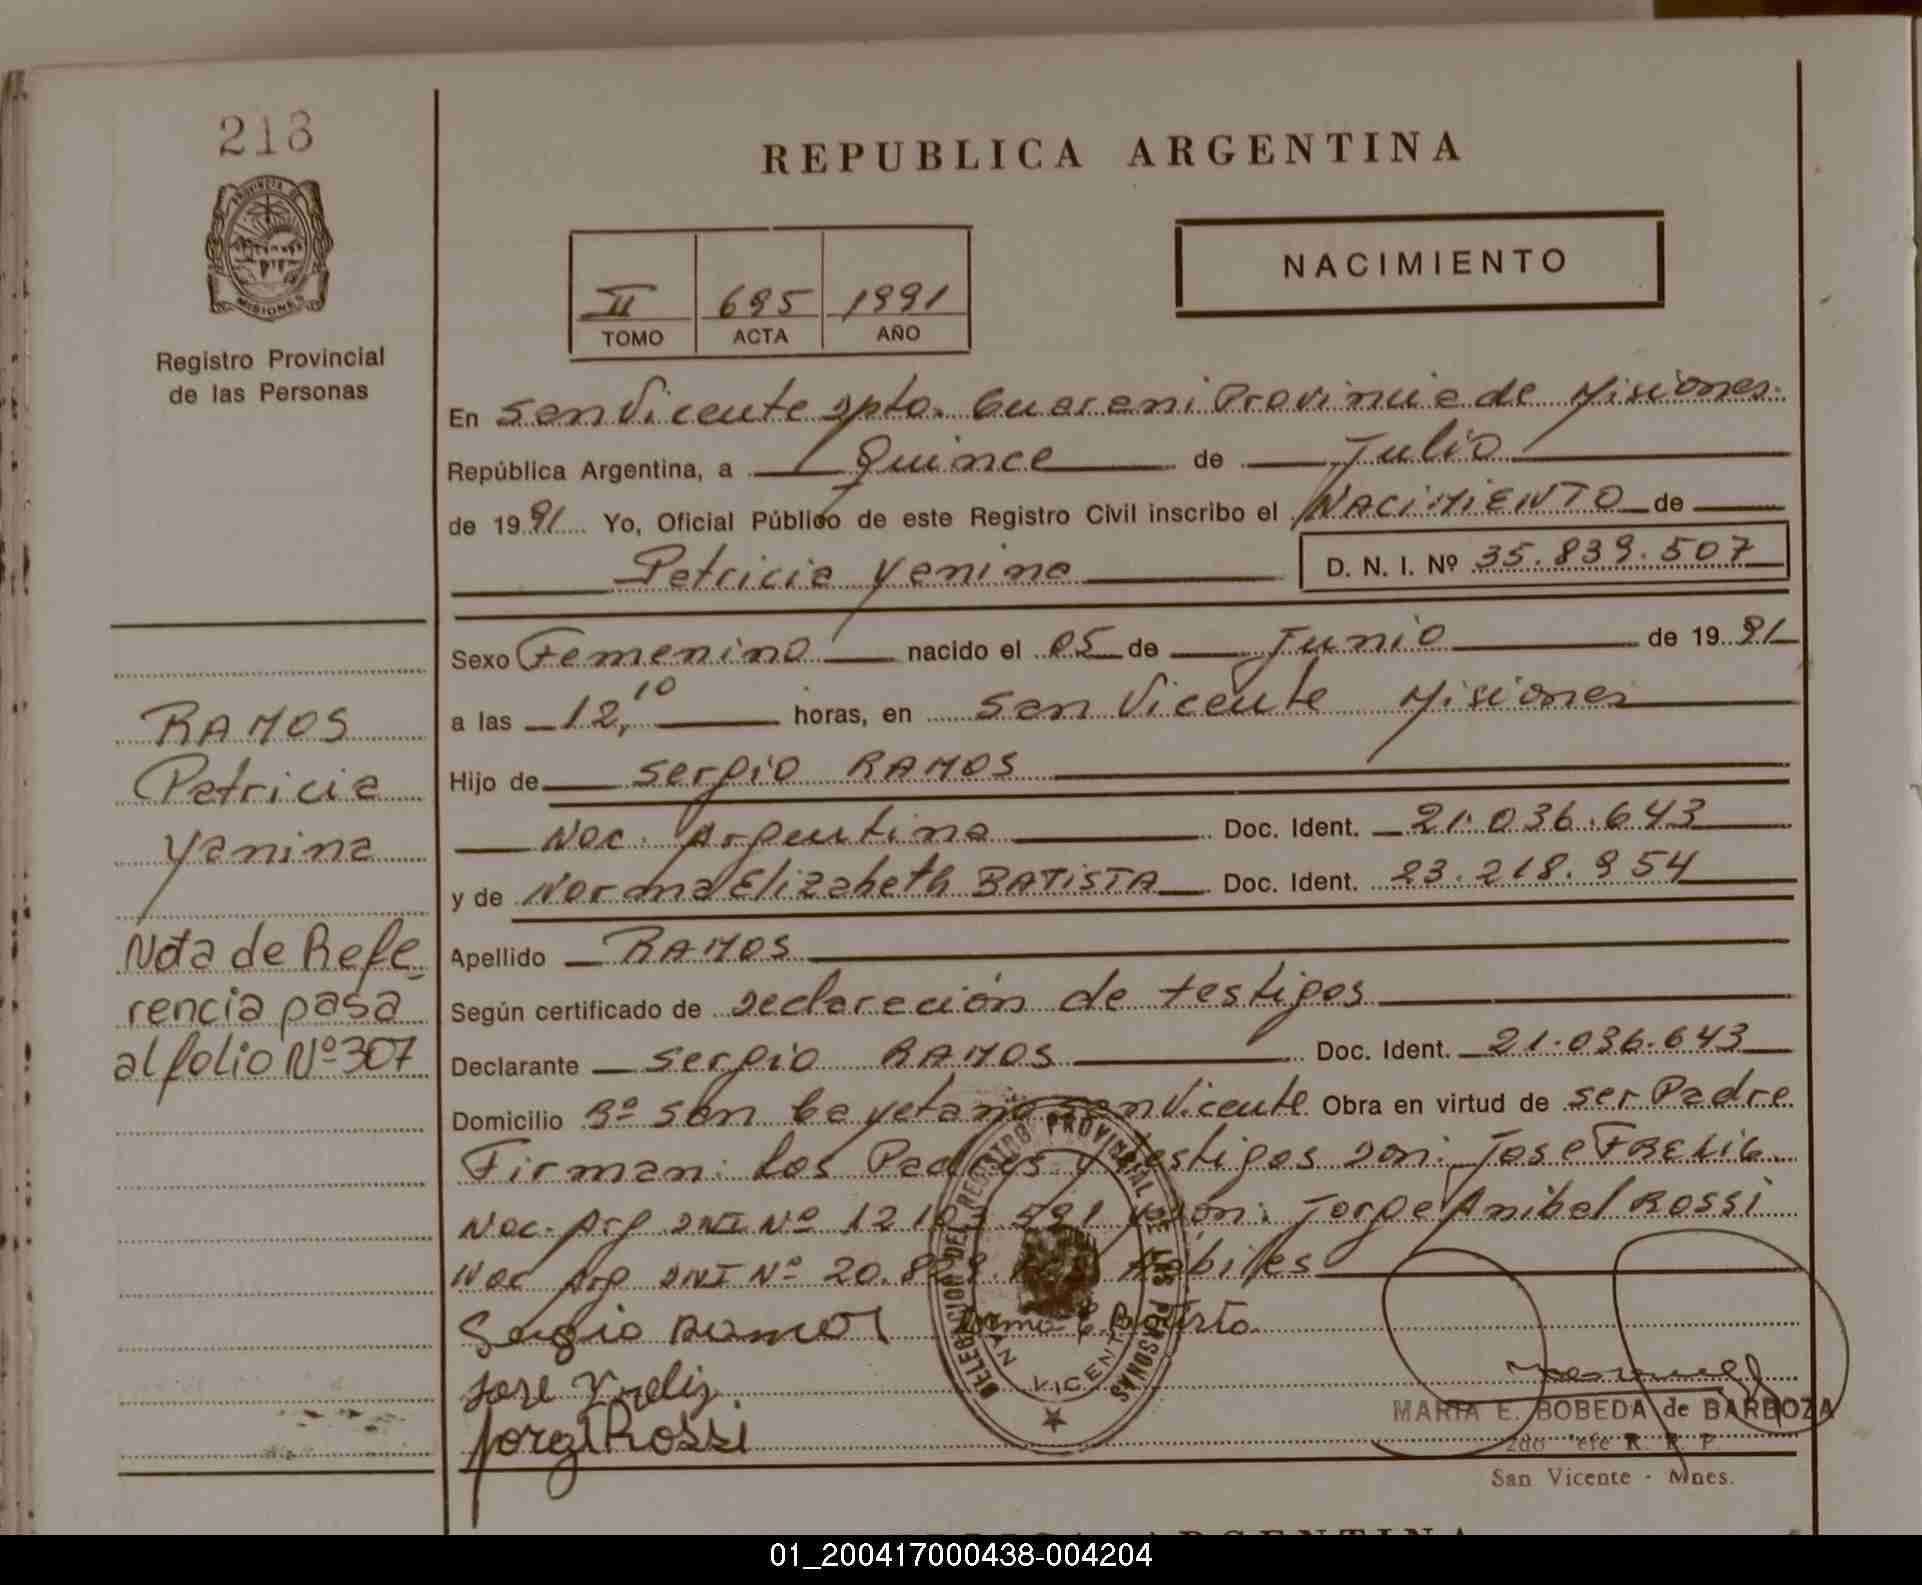 213
PROVINCIA DE
MISIONES
Registro Provincial
de las Personas
REPUBLICA ARGENTINA
II 695 1991
TOMO ACTA AÑO
NACIMIENTO
En San Vicente Dpto. Guarani Provincia de Misiones.
República Argentina, a Quince de Julio
de 1991 Yo, Oficial Público de este Registro Civil inscribo el NACIMIENTO de
Patricia Yanina D. N. I. Nº 35.839.507
Sexo Femenino nacido el 05 de Junio de 1991
a las 12,10 horas, en San Vicente Misiones
Hijo de Sergio RAMOS
Nac. Argentina Doc. Ident. 21.036.643
y de Norma Elizabeth BATISTA Doc. Ident. 23.218.954
Apellido RAMOS
Según certificado de Declaración de testigos
Declarante Sergio RAMOS Doc. Ident. 21.036.643
Domicilio Bº San Cayetano San Vicente Obra en virtud de ser Padre
Firman: Los Padres y testigos Don: Jose
Nac. Arg DNI Nº 12 y Don: Jorge Anibal Rossi
Nac Arg DNI Nº 20. Hábiles
Sergio Ramos Norma E. Batista
Jose
Jorge Rossi
DELEGACION DEL REGISTRO PROVINCIAL DE LAS PERSONAS
SAN VICENTE
MARIA E. BOBEDA de BARBOZA
2do Jefe R. P. P.
San Vicente - Mnes.
RAMOS
Patricia
Yanina
Nota de Refe
rencia pasa
al folio Nº 307
ARGENTINA
01_200417000438-004204